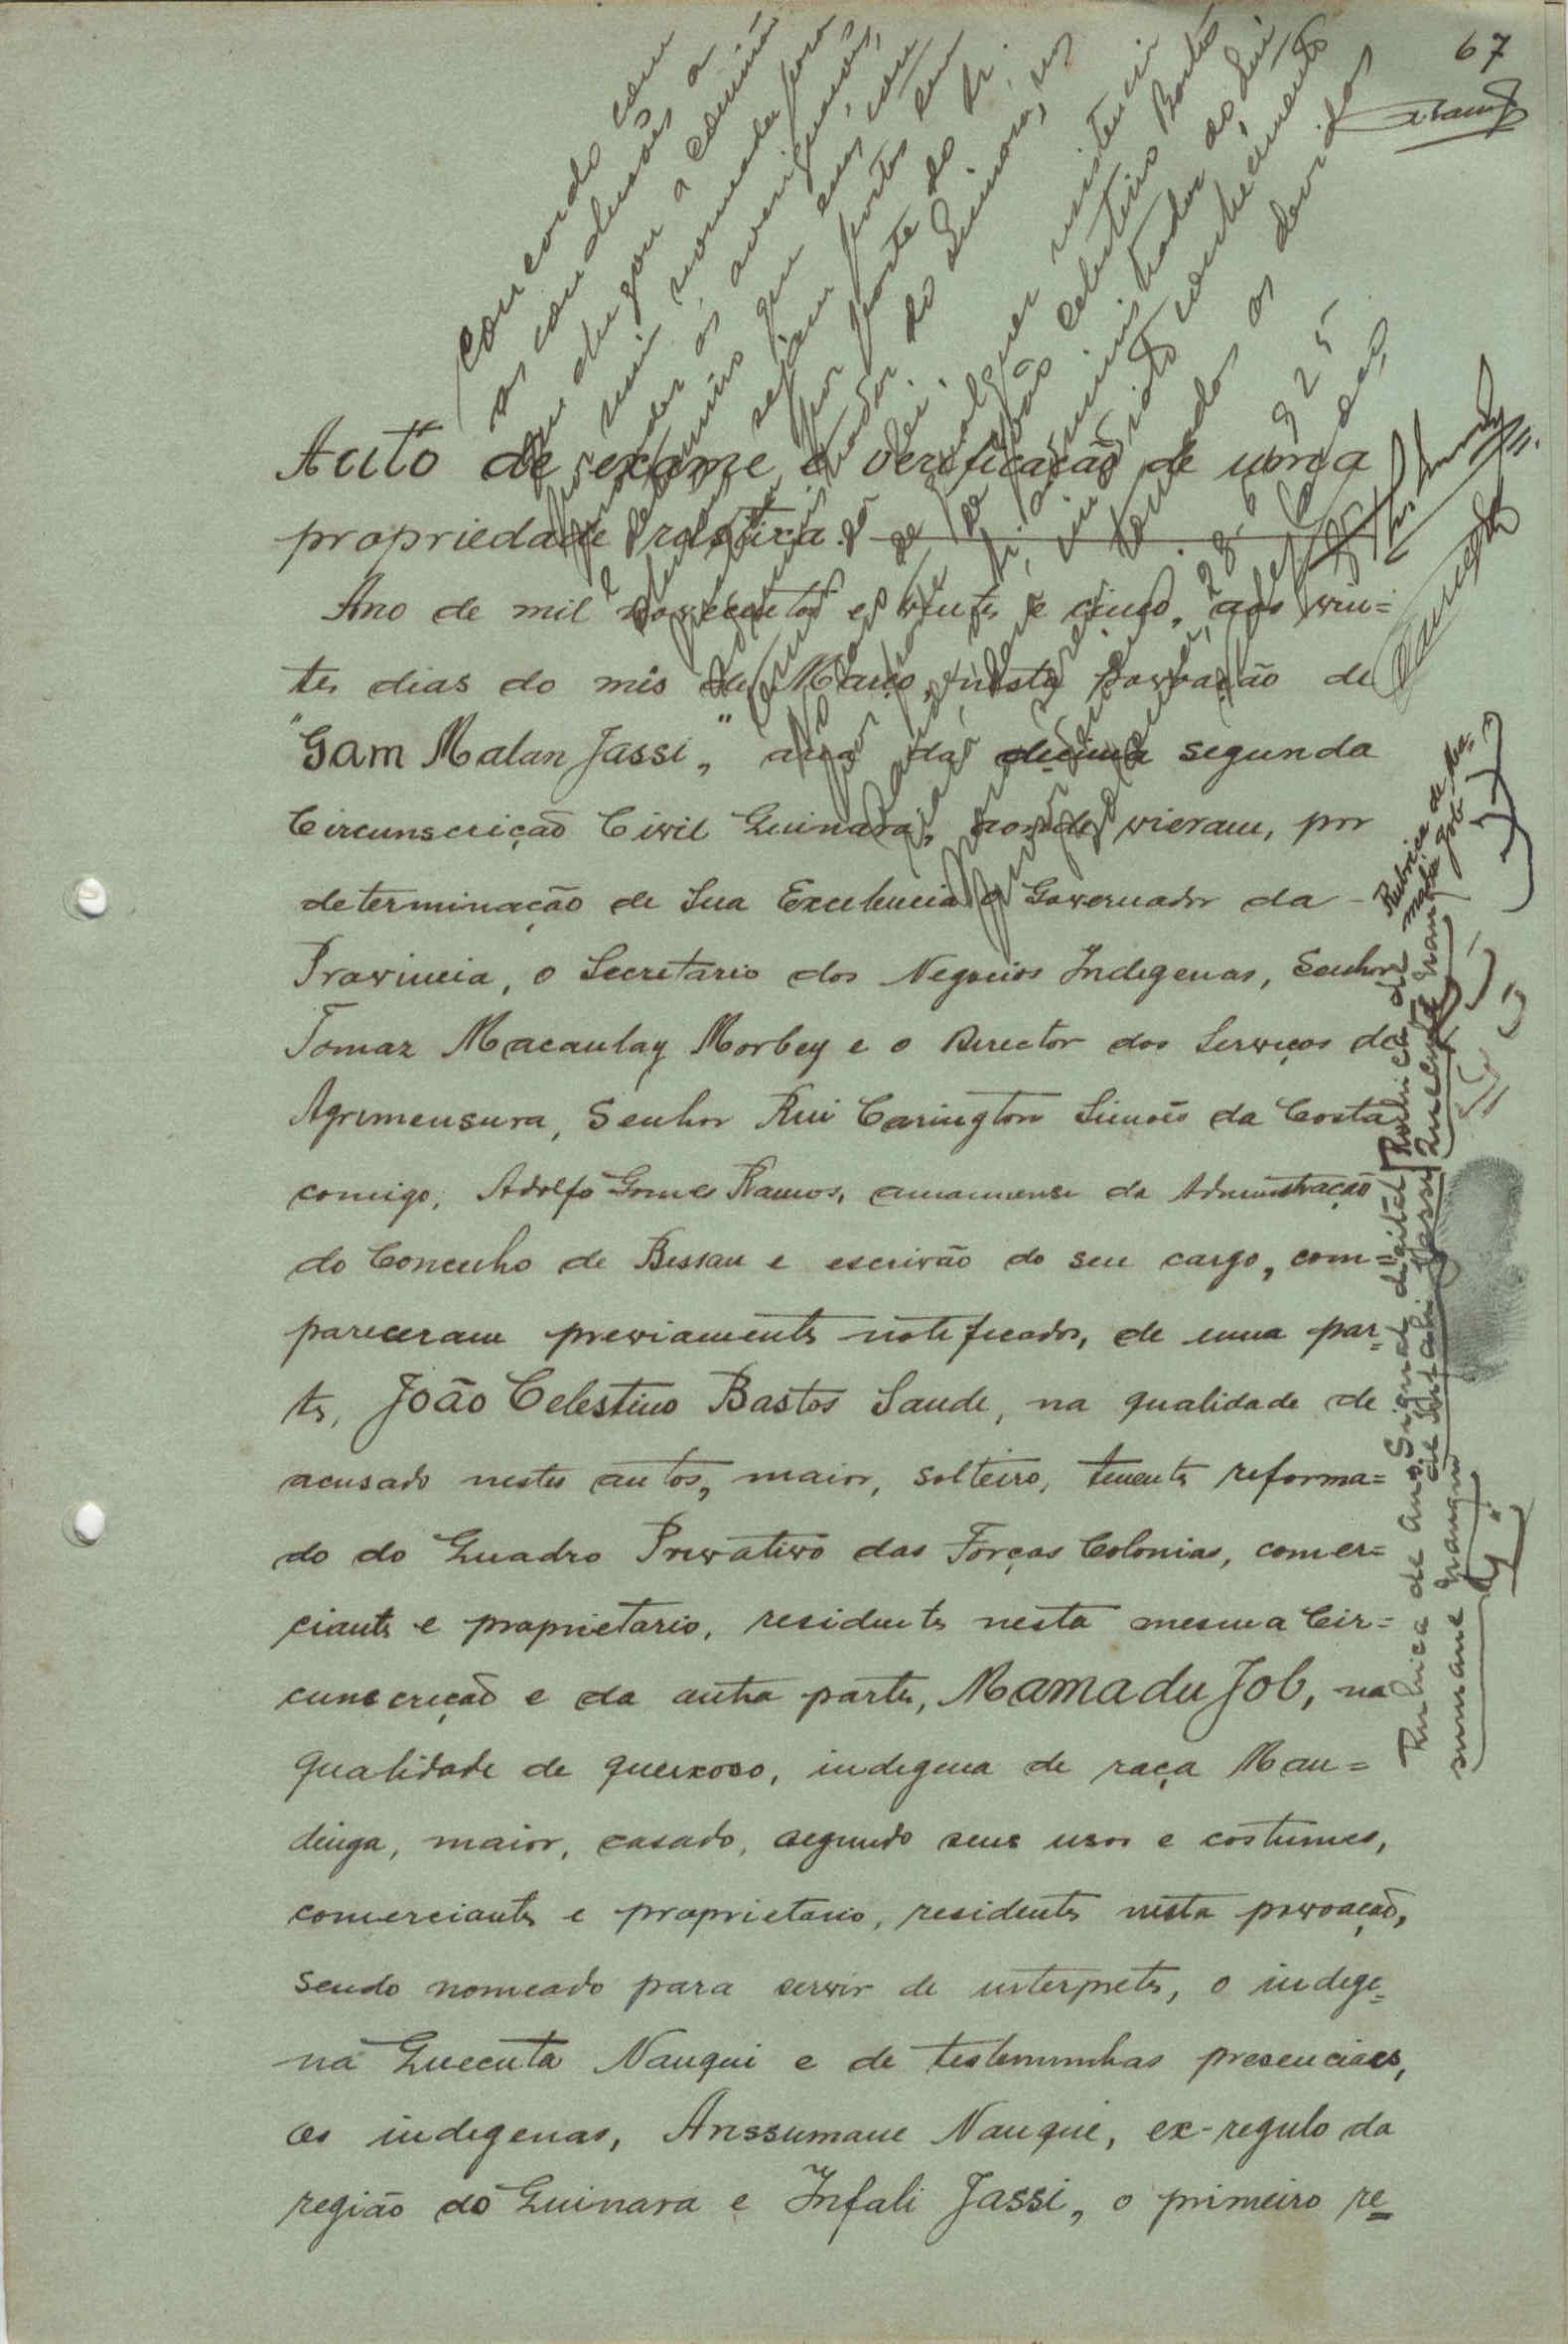 67
A. Ramos
Concordo com
as conclusões a
que chegou a comis-
por mim nomeada para
proceder ás averiguações,
e determino que essas con-
sejam postas em
por parte do Sr.
Administrador do Quinara, nos
termos da lei.
No caso de qualquer resistencia
por parte de João Celestino Bastos
Saude, o Sr. administrador do Qui-
nara, dará imediato conhecimento
para serem tomados os devidos
28-6-925
Auto de exame e verificação de uma
propriedade rustica.
Ano de mil novecentos e vinte e cinco, aos vin=
te dias do mês de Março, nesta povoação de
"Gam Malan Jassi", area da decima segunda
Circunscrição Civil Quinara, aonde vieram, por
determinação de Sua Excelencia o Governador da
Provincia, o Secretario dos Negocios Indigenas, Senhor
Tomaz Macaulay Morbey e o Director dos Serviços de
Agrimensura, Senhor Rui Carington Simões da Costa
comigo, Adolfo Gomes Ramos, amanuense da Administração
do Concelho de Bissau e escrivão do seu cargo, com=
pareceram previamente notificados, de uma par-
te, João Celestino Bastos Saude, na qualidade de
acusado nestes autos, maior, solteiro, tenente reforma=
do do Quadro Privativo das Forças Colonias, comer=
ciante e proprietario, residente nesta mesma Cir=
cunscrição e da outra parte, Mamadu Job, na
qualidade de queixoso, indigena de raça Man=
dinga, maior, casado, segundo seus usos e costumes,
comerciante e proprietario, residente nesta povoação,
sendo nomeado para servir de interprete, o indige-
na Quecuta Nanqui e de testemunhas presenciaes,
os indigenas, Anssumane Nanqui, ex-regulo da
região do Quinara e Infali Jassi, o primeiro re-
Rubrica de Ma-
madú Job
Rubrica de
Quecuta Nanqui
Signal digital
de Infali Jassi
Rubrica de Ans-
sumane Nanqui